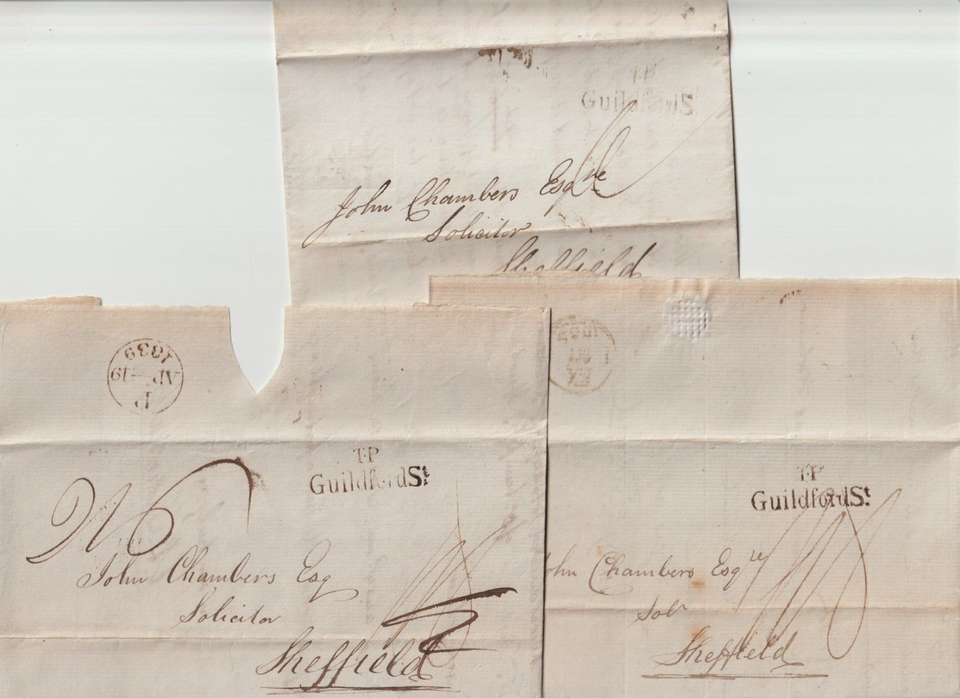 T.P
Guildford St
John Chambers Esqre
Solicitor
Sheffield
1839
AP-19
T.P
Guildford St.
John Chambers Esq
Solicitor
Sheffield
T.P
Guildford St.
John Chambers Esqre
Solr
Sheffield